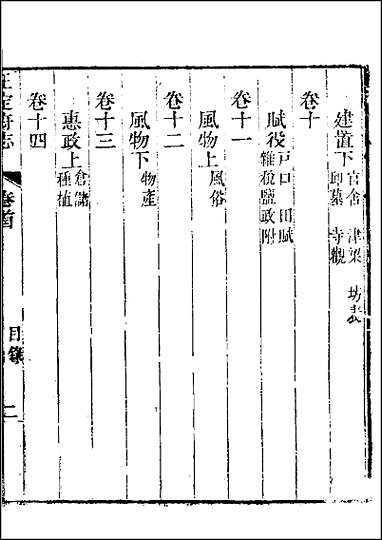 建置下 官舍 津梁 坊表
邱墓 寺觀
卷十
賦役 戸口 田賦
雜稅鹽政附
卷十一
風物上 風俗
卷十二
風物下 物產
卷十三
惠政上 倉儲
種植
卷十四
正定府志 卷首 目錄 二